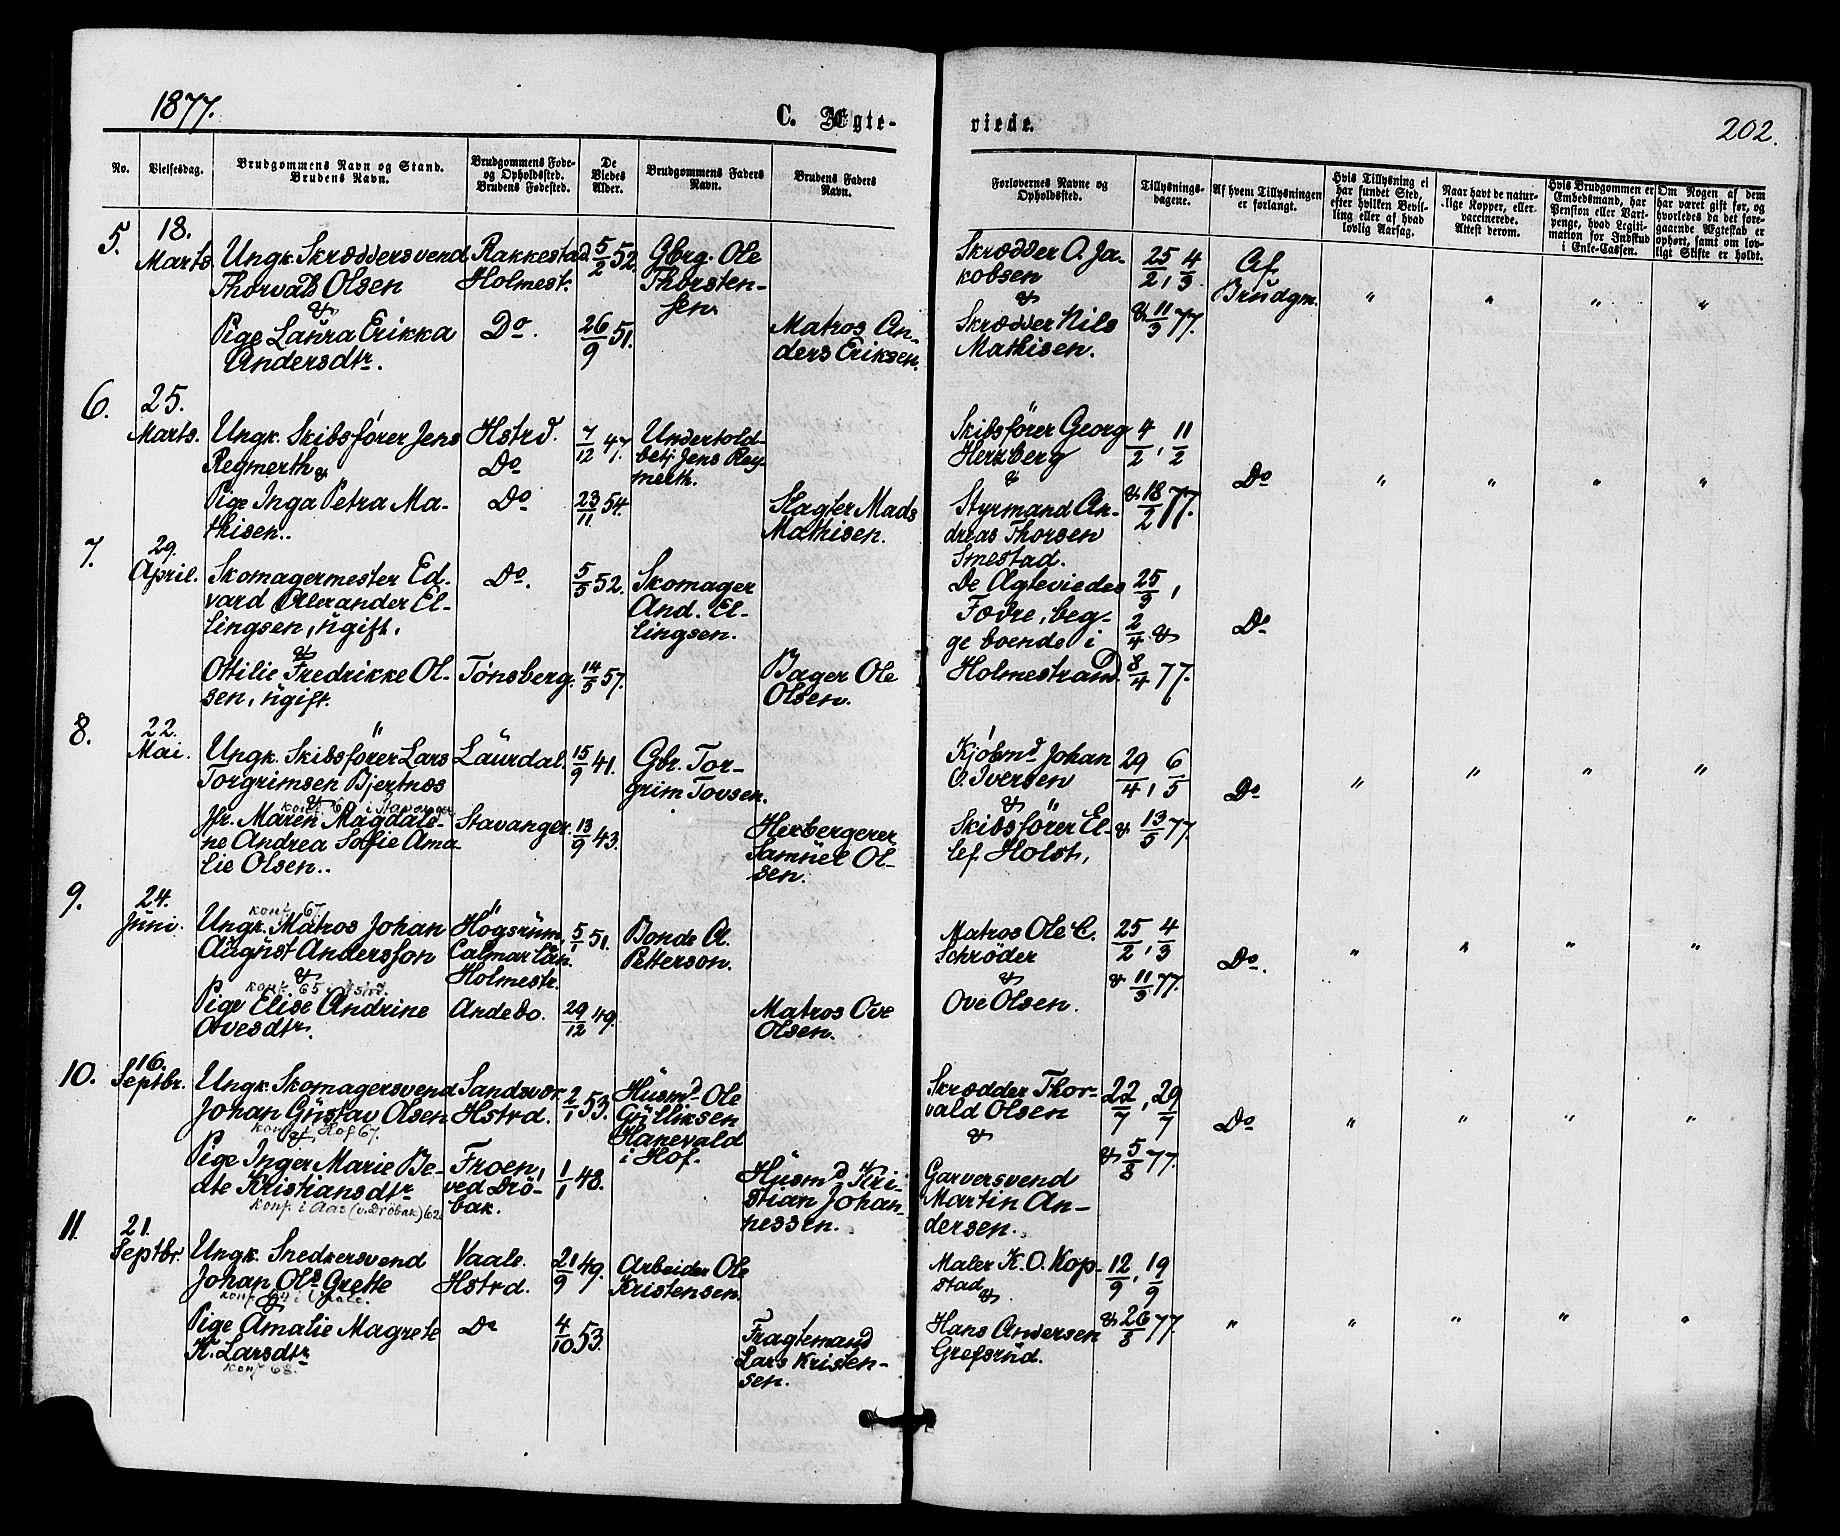 1877.
C. Ægte-
viede.
202.
No.
Vielsesdag.
Brudgommens Navn og Stand.
Brudens Navn.
Brudgommens Føde-
og Opholdssted.
Brudens Fødested.
De
Viedes
Alder.
Brudgommens Faders
Navn.
Brudens Faders
Navn.
Forlovernes Navne og
Opholdssted.
Tillysnings-
dagene.
Af hvem Tillysningen
er forlangt.
Hvis Tillysning ei
har fundet Sted,
efter hvilken Bevil-
ling eller af hvad
lovlig Aarsag.
Naar havt de natur-
lige Kopper, eller
vaccinerede.
Attest derom.
Hvis Brudgommen er
Embedsmand, har
Pension eller Vart-
penge, hvad Legiti-
mation for Indskud
i Enke-Cassen.
Om Nogen af dem
har været gift før, og
hvorledes da det fore-
gaaende Ægteskab er
ophørt, samt om lov-
ligt Skifte er holdt.
5.
18.
Marts.
Ungk. Skræddersvend
Thorvald Olsen
&
Pige Laura Erikka
Andersdtr.
Rakkestad
Holmest.
Do.
5/2 52.
26/9 51.
Gbrg. Ole
Thorsten-
sen.
Matros An-
ders Eriksen.
Skrædder O. Ja-
kobsen
&
Skrædder Nils
Mathisen.
25/2, 4/3
& 11/3 77.
Af
Brudgm.
" " " "
6.
25.
Marts.
Ungk. Skibsfører Jens
Regmerth &
Pige Inga Petra Ma-
thisen..
Hstrd.
Do
Do
7/12 47.
23/11 54.
Undertold-
betj. Jens Reg-
merth.
Slagter Mads
Mathisen.
Skibsfører Georg
Herzberg
&
Styrmand An-
dreas Thorsen
Smestad.
4/2, 11/2
& 18/2 77.
Do
" " " "
7.
29.
April.
Skomagermester Ed-
vard Alexander El-
lingsen, ugift,
&
Ottilie Fredrikke Ol-
sen, ugift.
Do.
Tønsberg.
5/5 52.
14/5 57.
Skomager
And. El-
lingsen.
Bager Ole
Olsen.
De Ægteviedes
Fædre, beg-
ge boende i
Holmestrand
25/3,
2/4 &
8/4 77.
Do
8.
22.
Mai.
Ungk. Skibsfører Lars
Torgrimsen Bjertnæs
&
konf. 60 i Stavanger
Jfr. Maren Magdale-
ne Andrea Sofie Ama-
lie Olsen..
Laurdal.
Stavanger.
15/9 41.
13/9 43.
Gbr. Tor-
grim Tovsen.
Herbergerer
Samuel Ol-
sen.
Kjøbmd Johan
O. Iversen
&
Skibsfører El-
lef Holst,
29/4, 6/5
& 13/5 77.
Do
" " " "
9.
24.
Juni.
konf. 67.
Ungk. Matros Johan
August Andersson
&
konf. 65 i Hstrd.
Pige Elise Andrine
Ovesdtr.
Högsrum,
Calmar Län.
Holmestr.
Andebo.
5/1 51.
29/12 49.
Bonde A.
Petterson.
Matros Ove
Olsen.
Matros Ole C.
Schrøder
&
Ove Olsen.
25/2, 4/3
& 11/3 77.
Do.
" " " "
10.
16.
Septbr.
Ungk. Skomagersvend
Johan Gustav Olsen
konf. i Hof 67.
&
Pige Inger Marie Be-
ate Kristiansdtr
konf. i Aas (v. Drøbak) 62.
Sandsvær.
Hstrd.
Froen,
ved Drø-
bak.
2/1 53.
1/1 48.
Husmd Ole
Gulliksen
Hanevald
i Hof.
Husmd Kri-
stian Johan-
nessen.
Skrædder Thor-
vald Olsen
&
Garversvend
Martin An-
dersen.
22/7, 29/7
& 5/8 77.
Do
" " " "
11.
21.
Septbr.
Ungk. Snedkersvend
Johan Ols Grette
konf. 64 i Vaale.
&
Pige Amalie Magrete
K. Larsdtr
konf. 68.
Vaale.
Hstrd.
Do
21/9 49.
4/10 53.
Arbeider Ole
Kristensen.
Fragtemand
Lars Kristen-
sen.
Maler K. O. Kop-
stad
&
Hans Andersen
Grefsrud.
12/9, 19/9
& 26/8 77.
" " " " "